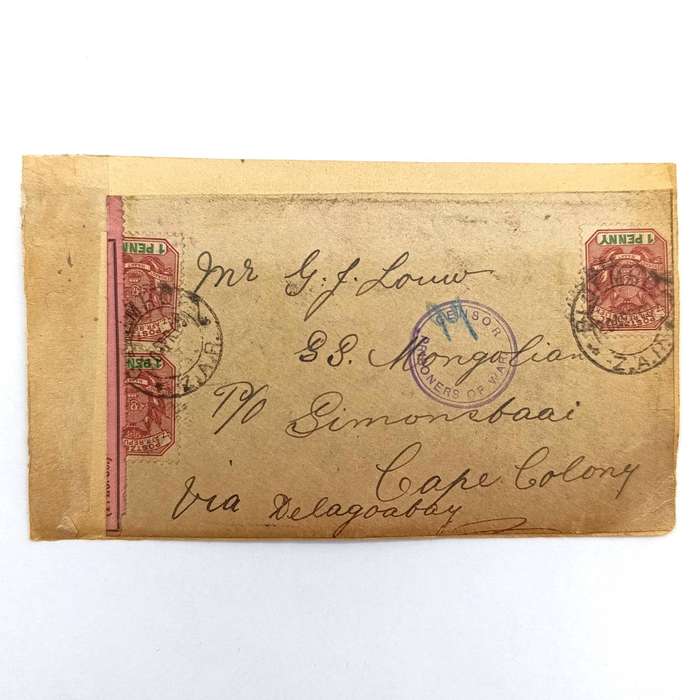 1 PENNY
1 PENN
1 PEN
Mr G. J. Louw
CENSOR
PRISONERS OF WAR
S.S. Mongolian
P/O Simonsbaai
Cape Colony
via Delagoabay
Z.A.R.
Z.A.R.